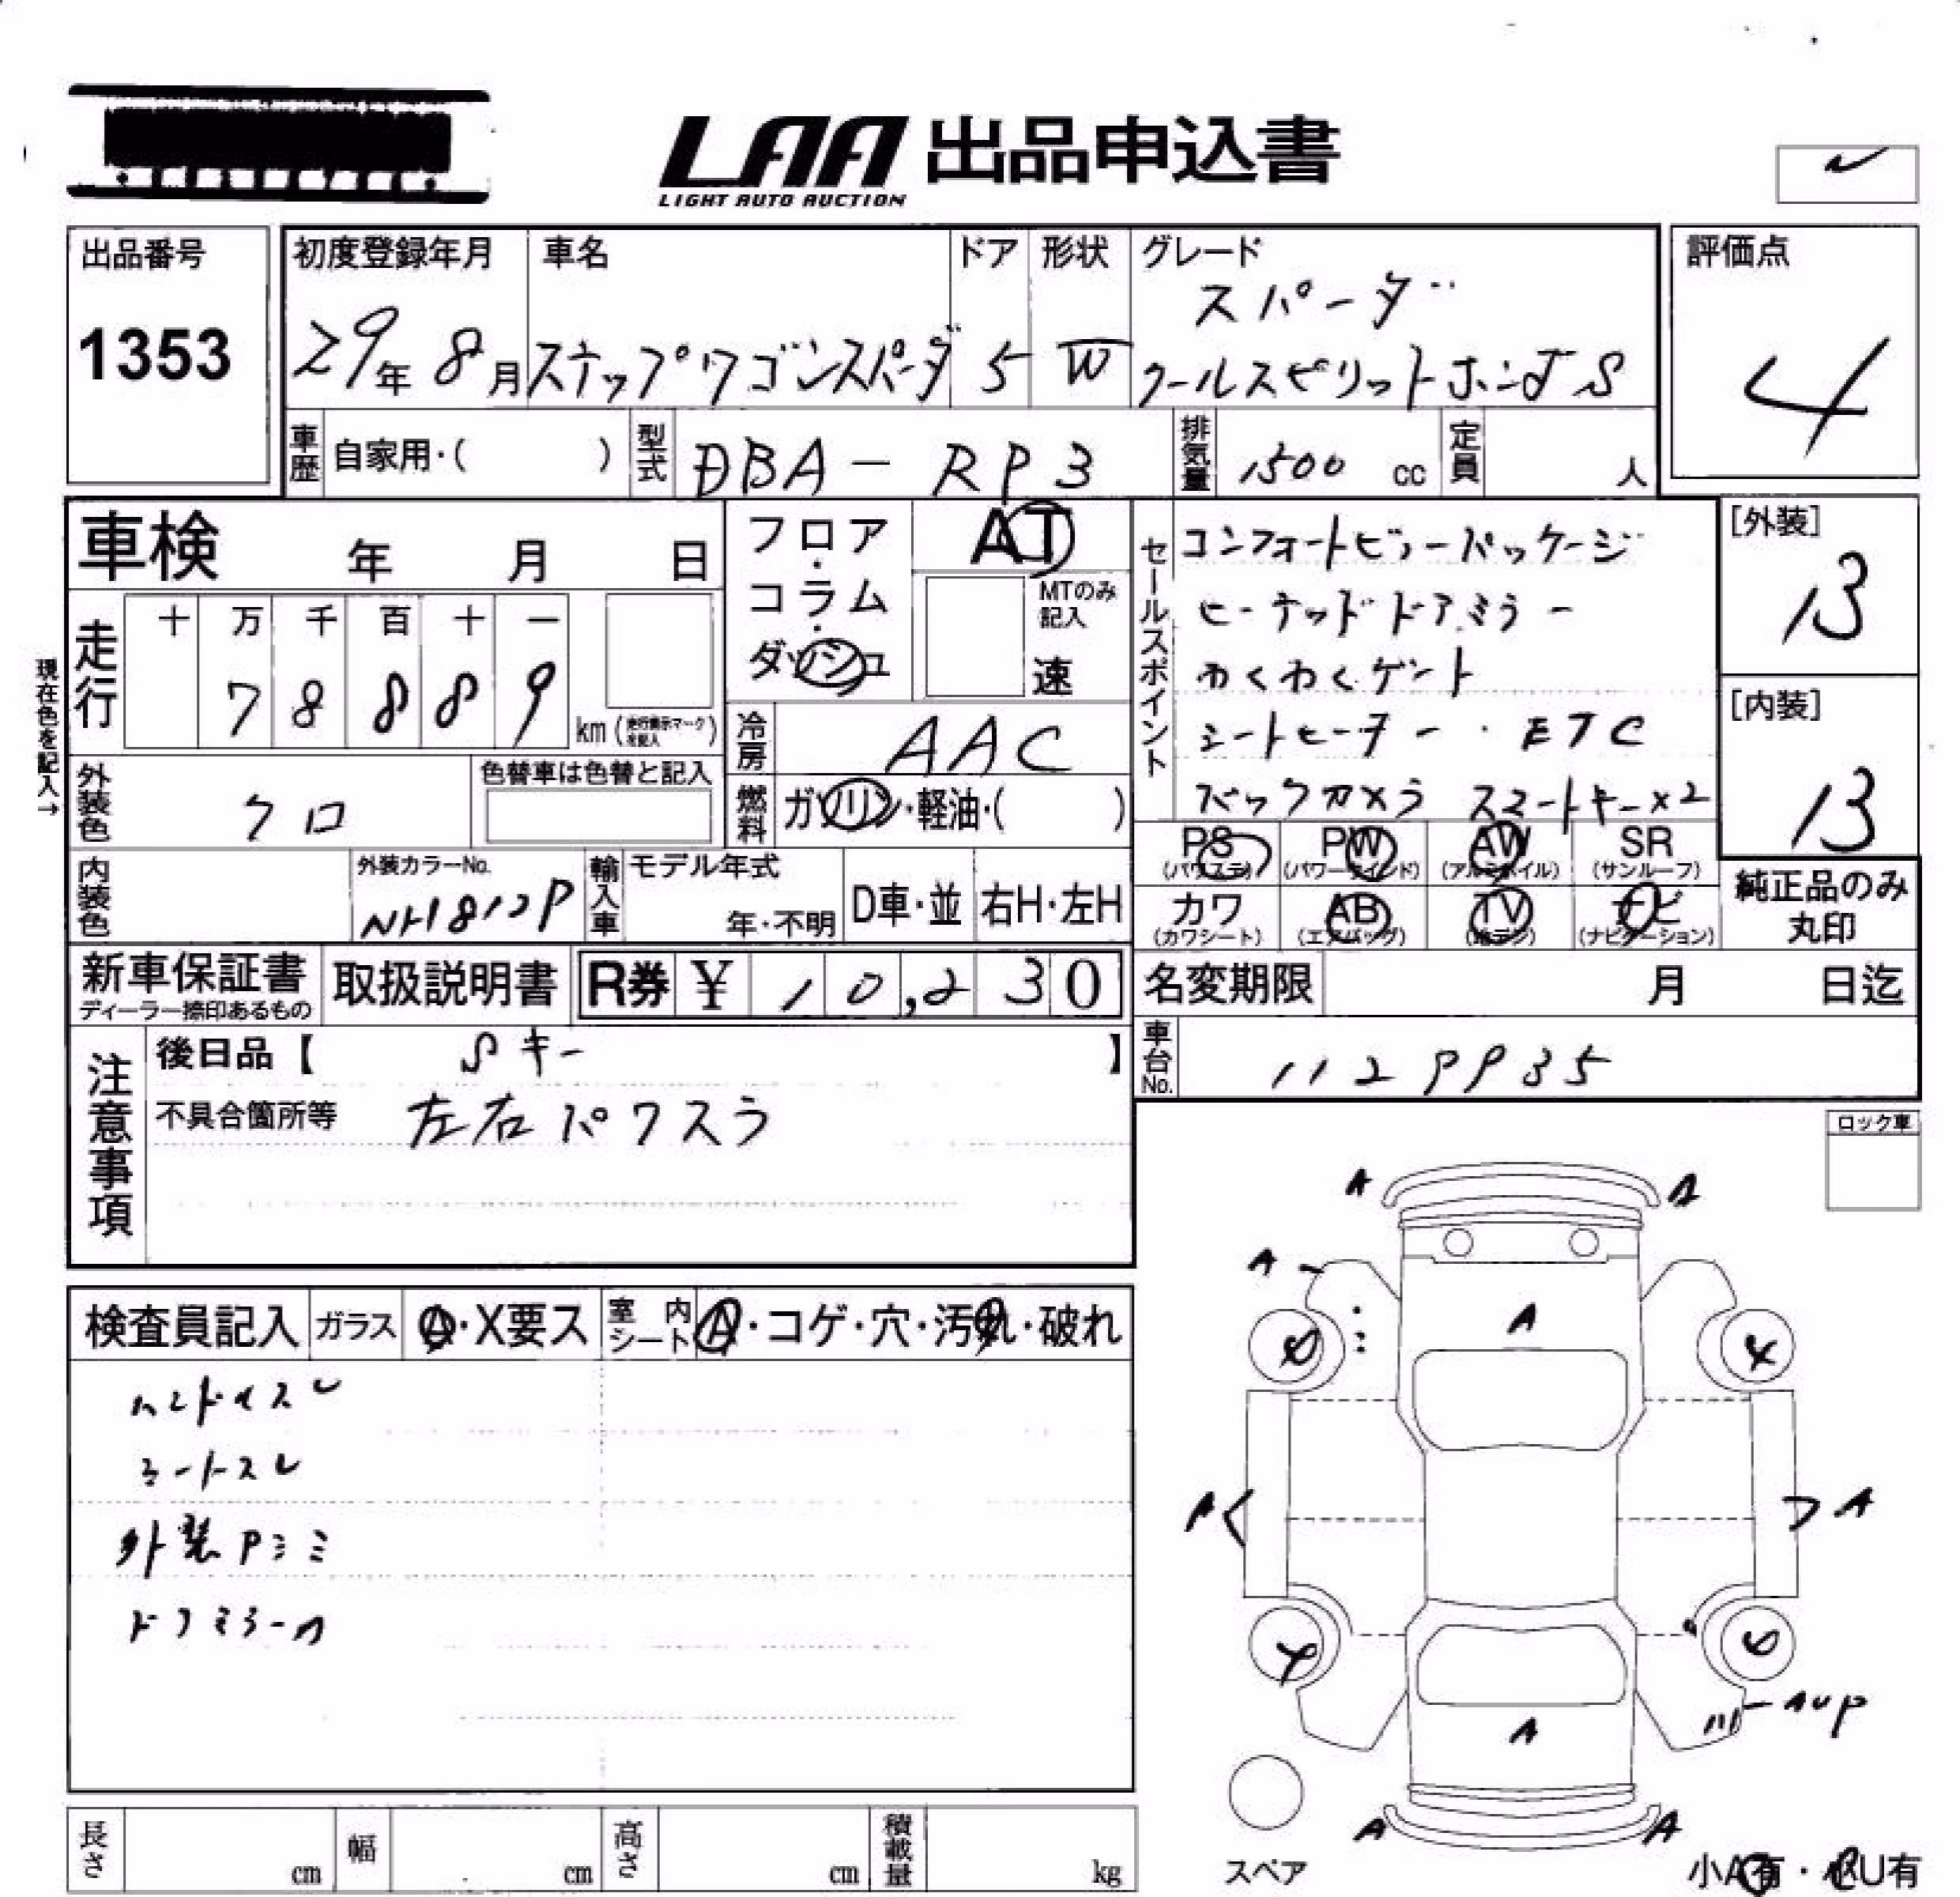 LAA 出品申込書
LIGHT AUTO AUCTION
出品番号
1353
初度登録年月
29年 8月
車名
ステップワゴンスパーダ
ドア
5
形状
W
グレード
スパーダ
クールスピリットホンダS
評価点
4
車歴 自家用・( )
型式 DBA-RP3
排気量 1500 cc
定員 人
車検 年 月 日
フロア・コラム・ダッシュ
AT
MTのみ記入
速
セールスポイント
コンフォートビューパッケージ
ヒーテッドドアミラー
わくわくゲート
シートヒーター・ETC
バックカメラ スマートキー×2
[外装]
13
[内装]
13
現在色を記入→
走行
十 万 千 百 十 一
7 8 8 8 9 km (走行表示マークを記入)
冷房 AAC
外装色 クロ
色替車は色替と記入
燃料 ガソリン・軽油・( )
PS (パワステ)
PW (パワーウインド)
AW (アルミホイル)
SR (サンルーフ)
カワ (カワシート)
AB (エアバッグ)
TV (地デジ)
ナビ (ナビゲーション)
純正品のみ丸印
内装色
外装カラーNo.
NH812P
輸入車
モデル年式
年・不明
D車・並
右H・左H
新車保証書
ディーラー捺印あるもの
取扱説明書
R券 ¥ 10,230
名変期限 月 日迄
車台No.
注意事項
後日品【 Sキー 】
不具合箇所等 左右パワスラ
ロック車
検査員記入
ガラス A・X要ス
室内シート A・コゲ・穴・汚れ・破れ
ハンドルスレ
シートスレ
外装Pミミ
ドアミラーA
A
A
A
A
A
A
AUP
A
A
A
スペア
小A有・小U有
長さ cm
幅 cm
高さ cm
積載量 kg